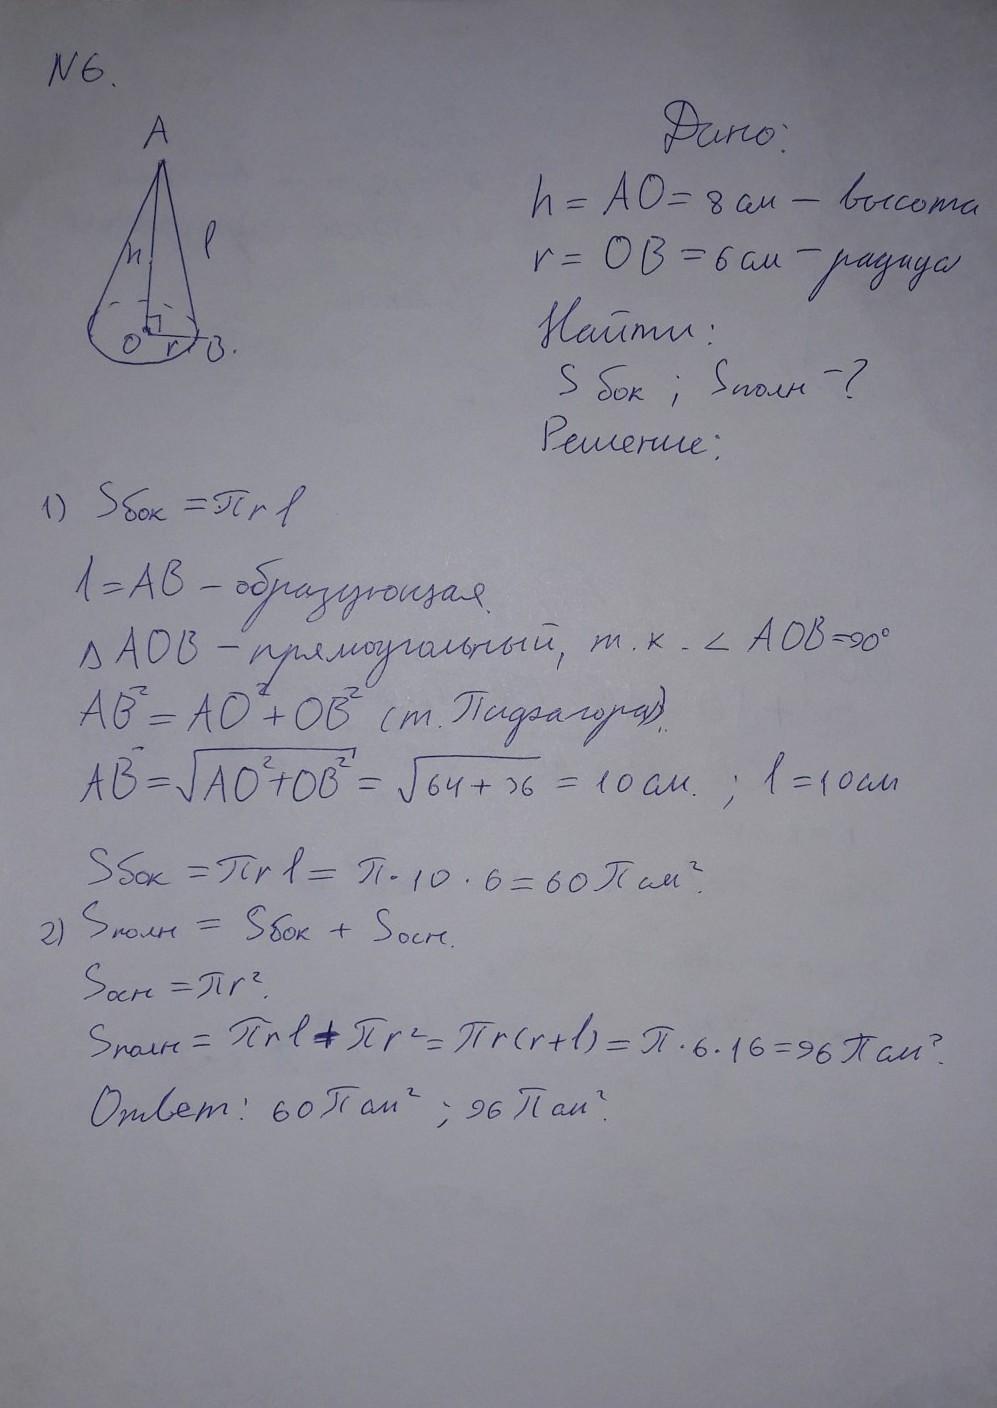 N 6.
A
h
l
O
r
B.
Дано:
h = AO = 8 см – высота
r = OB = 6 см – радиус
Найти:
S бок ; Sполн –?
Решение:
1) Sбок = πrl
l = AB – образующая
△ AOB – прямоугольный, т.к. ∠ AOB = 90°
AB² = AO² + OB² (т. Пифагора).
AB = √AO²+OB² = √64+36 = 10 см. ; l = 10 см
Sбок = πrl = π · 10 · 6 = 60 π см².
2) Sполн = Sбок + Sосн.
Sосн = πr².
Sполн = πrl + πr² = πr(r+l) = π · 6 · 16 = 96 π см².
Ответ: 60 π см² ; 96 π см².